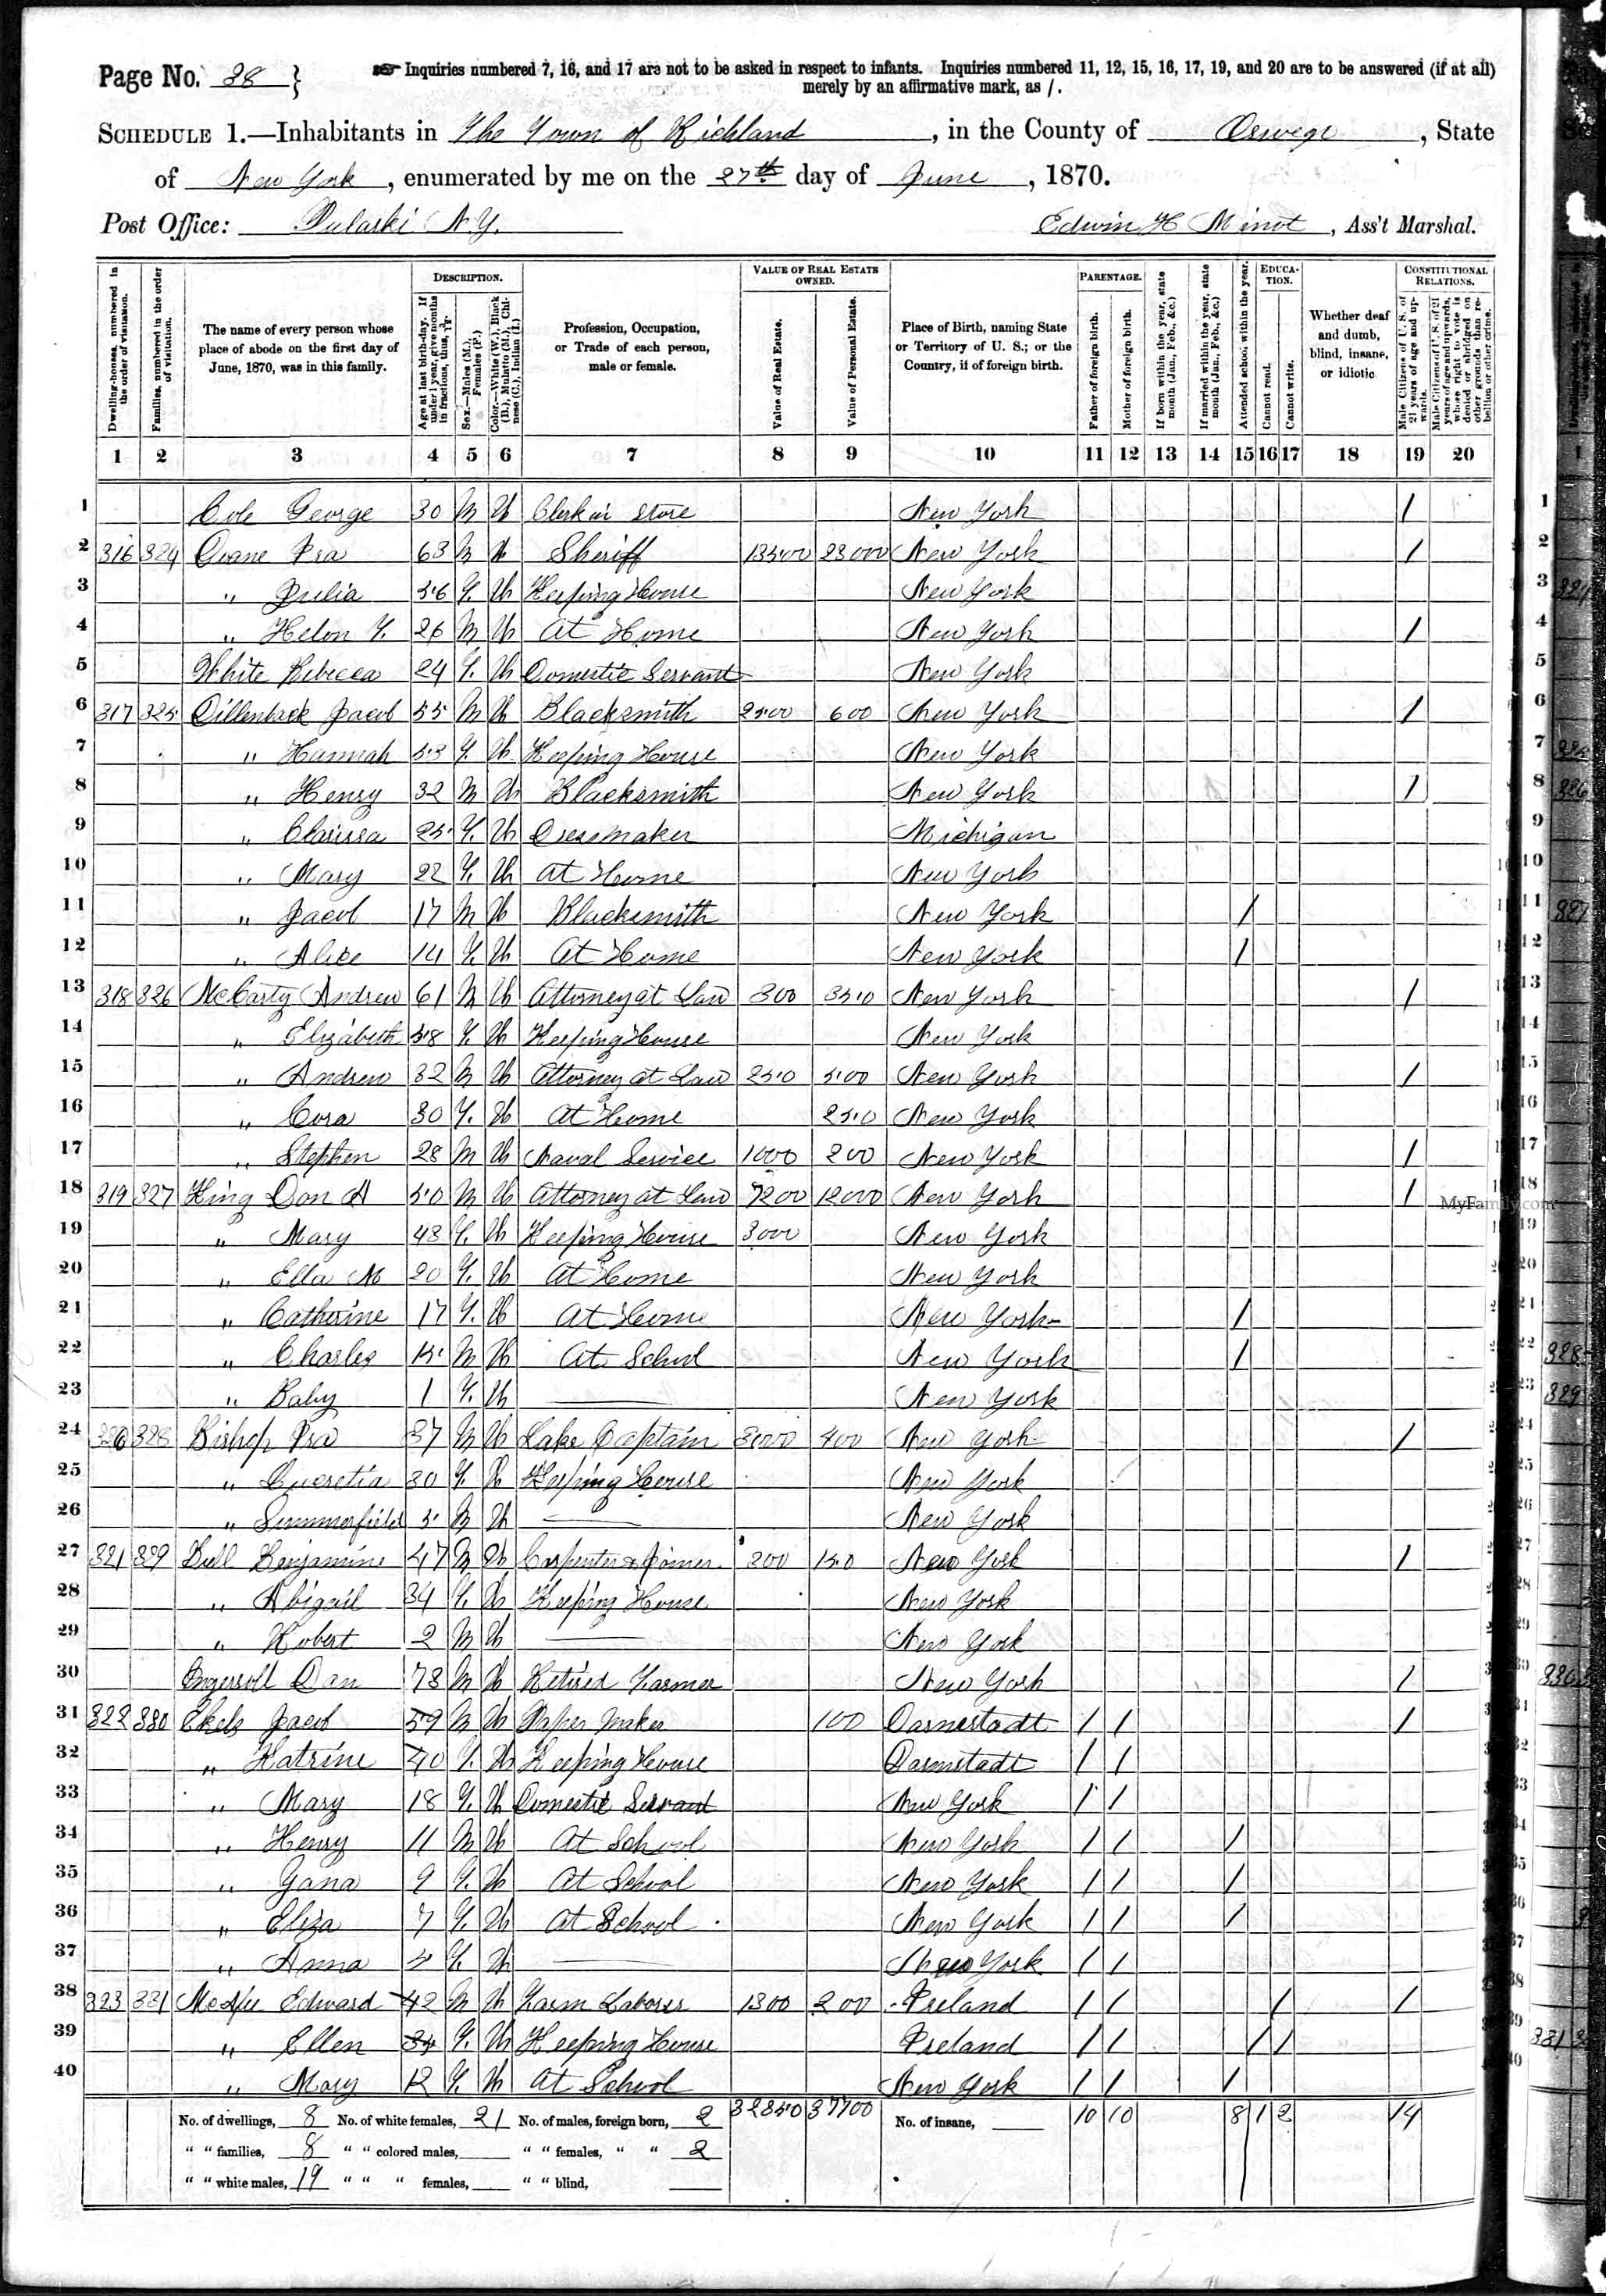 Page No. 38 } Inquiries numbered 7, 16, and 17 are not to be asked in respect to infants. Inquiries numbered 11, 12, 15, 16, 17, 19, and 20 are to be answered (if at all)
merely by an affirmative mark, as /.
SCHEDULE 1.—Inhabitants in The Town of Richland, in the County of Oswego, State
of New York, enumerated by me on the 27th day of June, 1870.
Post Office: Pulaski N.Y. Edwin H Minot, Ass't Marshal.
Dwelling-houses, numbered in the order of visitation.
Families, numbered in the order of visitation.
The name of every person whose place of abode on the first day of June, 1870, was in this family.
DESCRIPTION.
Age at last birth-day. If under 1 year, give months in fractions, thus, 3/12
Sex.—Males (M.), Females (F.)
Color.—White (W.), Black (B.), Mulatto (M.), Chinese (C.), Indian (I.)
Profession, Occupation, or Trade of each person, male or female.
VALUE OF REAL ESTATE OWNED.
Value of Real Estate.
Value of Personal Estate.
Place of Birth, naming State or Territory of U. S.; or the Country, if of foreign birth.
PARENTAGE.
Father of foreign birth.
Mother of foreign birth.
If born within the year, state month (Jan., Feb., &c.)
If married within the year, state month (Jan., Feb., &c.)
Attended school within the year.
EDUCATION.
Cannot read.
Cannot write.
Whether deaf and dumb, blind, insane, or idiotic
CONSTITUTIONAL RELATIONS.
Male Citizens of U. S. of 21 years of age and upwards.
Male Citizens of U. S. of 21 years of age and upwards, whose right to vote is denied or abridged on other grounds than rebellion or other crime.
1 2 3 4 5 6 7 8 9 10 11 12 13 14 15 16 17 18 19 20
1 Cole George 30 M W Clerk in Store New York /
2 316 324 Doane Ira 63 M W Sheriff 13500 23000 New York /
3 " Julia 56 F. W Keeping House New York
4 " Helon F. 26 M W At Home New York /
5 White Rebecca 24 F. W Domestic Servant New York
6 317 325 Dillenback Jacob 55 M W Blacksmith 2500 600 New York /
7 " Hannah 53 F. W Keeping House New York
8 " Henry 32 M W Blacksmith New York /
9 " Clarissa 25 F. W Dressmaker Michigan
10 " Mary 22 F. W At Home New York
11 " Jacob 17 M W Blacksmith New York /
12 " Alice 14 F. W At Home New York /
13 318 326 McCarty Andrew 61 M W Attorney at Law 300 350 New York /
14 " Elizabeth 58 F. W Keeping House New York
15 " Andrew 32 M W Attorney at Law 250 500 New York /
16 " Cora 30 F. W At Home 250 New York
17 " Stephen 28 M W Naval Service 1000 200 New York /
18 319 327 King Don A 50 M W Attorney at Law 7200 12000 New York /
MyFamily.com
19 " Mary 48 F. W Keeping House 3000 New York
20 " Ella M 20 F. W At Home New York
21 " Catherine 17 F. W At Home New York /
22 " Charles 15 M W At School New York /
23 " Baby 1 F. W New York
24 320 328 Bishop Ira 37 M W Lake Captain 3000 400 New York /
25 " Lucretia 30 F. W Keeping House New York
26 " Summerfield 5 M W New York
27 321 329 Bull Benjamine 47 M W Carpenter & Joiner 200 150 New York /
28 " Abigail 34 F. W Keeping House New York
29 " Robert 2 M W New York
30 Ingersoll Dan 78 M W Retired Farmer New York /
31 322 330 Ekels Jacob 59 M W Paper Maker 100 Darmstadt / / /
32 " Katrine 40 F. W Keeping House Darmstadt / /
33 " Mary 18 F. W Domestic Servant New York / /
34 " Henry 11 M W At School New York / / /
35 " Gana 9 F. W At School New York / / /
36 " Eliza 7 F. W At School New York / / /
37 " Anna F. W New York / /
38 323 331 McAfee Edward 42 M W Farm Laborer 1300 200 Ireland / / / /
39 " Ellen 34 F. W Keeping House Ireland / / / /
40 " Mary 12 F. W At School New York / / /
No. of dwellings, 8 No. of white females, 21 No. of males, foreign born, 2 32850 37700 No. of insane, 10 10 8 1 2 14
" " families, 8 " " colored males, " " females, " " 2
" " white males, 19 " " " females, " " blind,